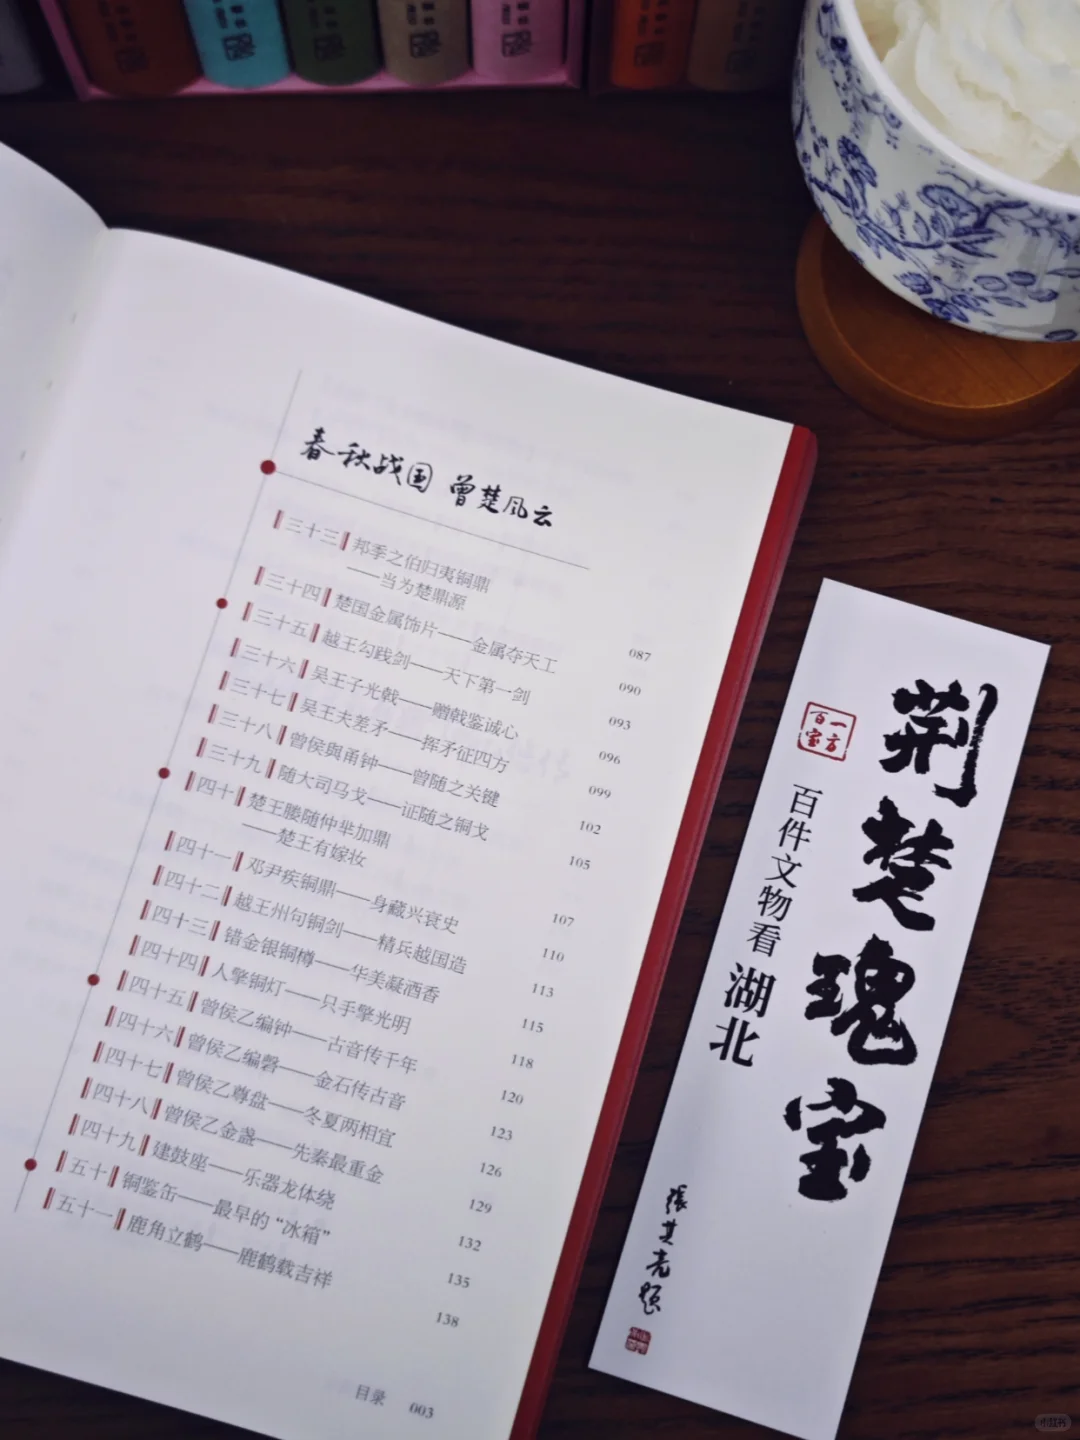 春秋战国 曾楚风云
三十三 邦季之伯归夷铜鼎
——当为楚鼎源 087
三十四 楚国金属饰片——金属夺天工 090
三十五 越王勾践剑——天下第一剑 093
三十六 吴王子光戟——赠戟鉴诚心 096
三十七 吴王夫差矛——挥矛征四方 099
三十八 曾侯與甬钟——曾随之关键 102
三十九 随大司马戈——证随之铜戈 105
四十 楚王媵随仲芈加鼎
——楚王有嫁妆 107
四十一 邓尹疾铜鼎——身藏兴衰史 110
四十二 越王州句铜剑——精兵越国造 113
四十三 错金银铜樽——华美凝酒香 115
四十四 人擎铜灯——只手擎光明 118
四十五 曾侯乙编钟——古音传千年 120
四十六 曾侯乙编磬——金石传古音 123
四十七 曾侯乙尊盘——冬夏两相宜 126
四十八 曾侯乙金盏——先秦最重金 129
四十九 建鼓座——乐器龙体绕 132
五十 铜鉴缶——最早的“冰箱” 135
五十一 鹿角立鹤——鹿鹤载吉祥 138
目录 003
荆楚瑰宝
一方百宝
百件文物看湖北
张其亮题
小红书